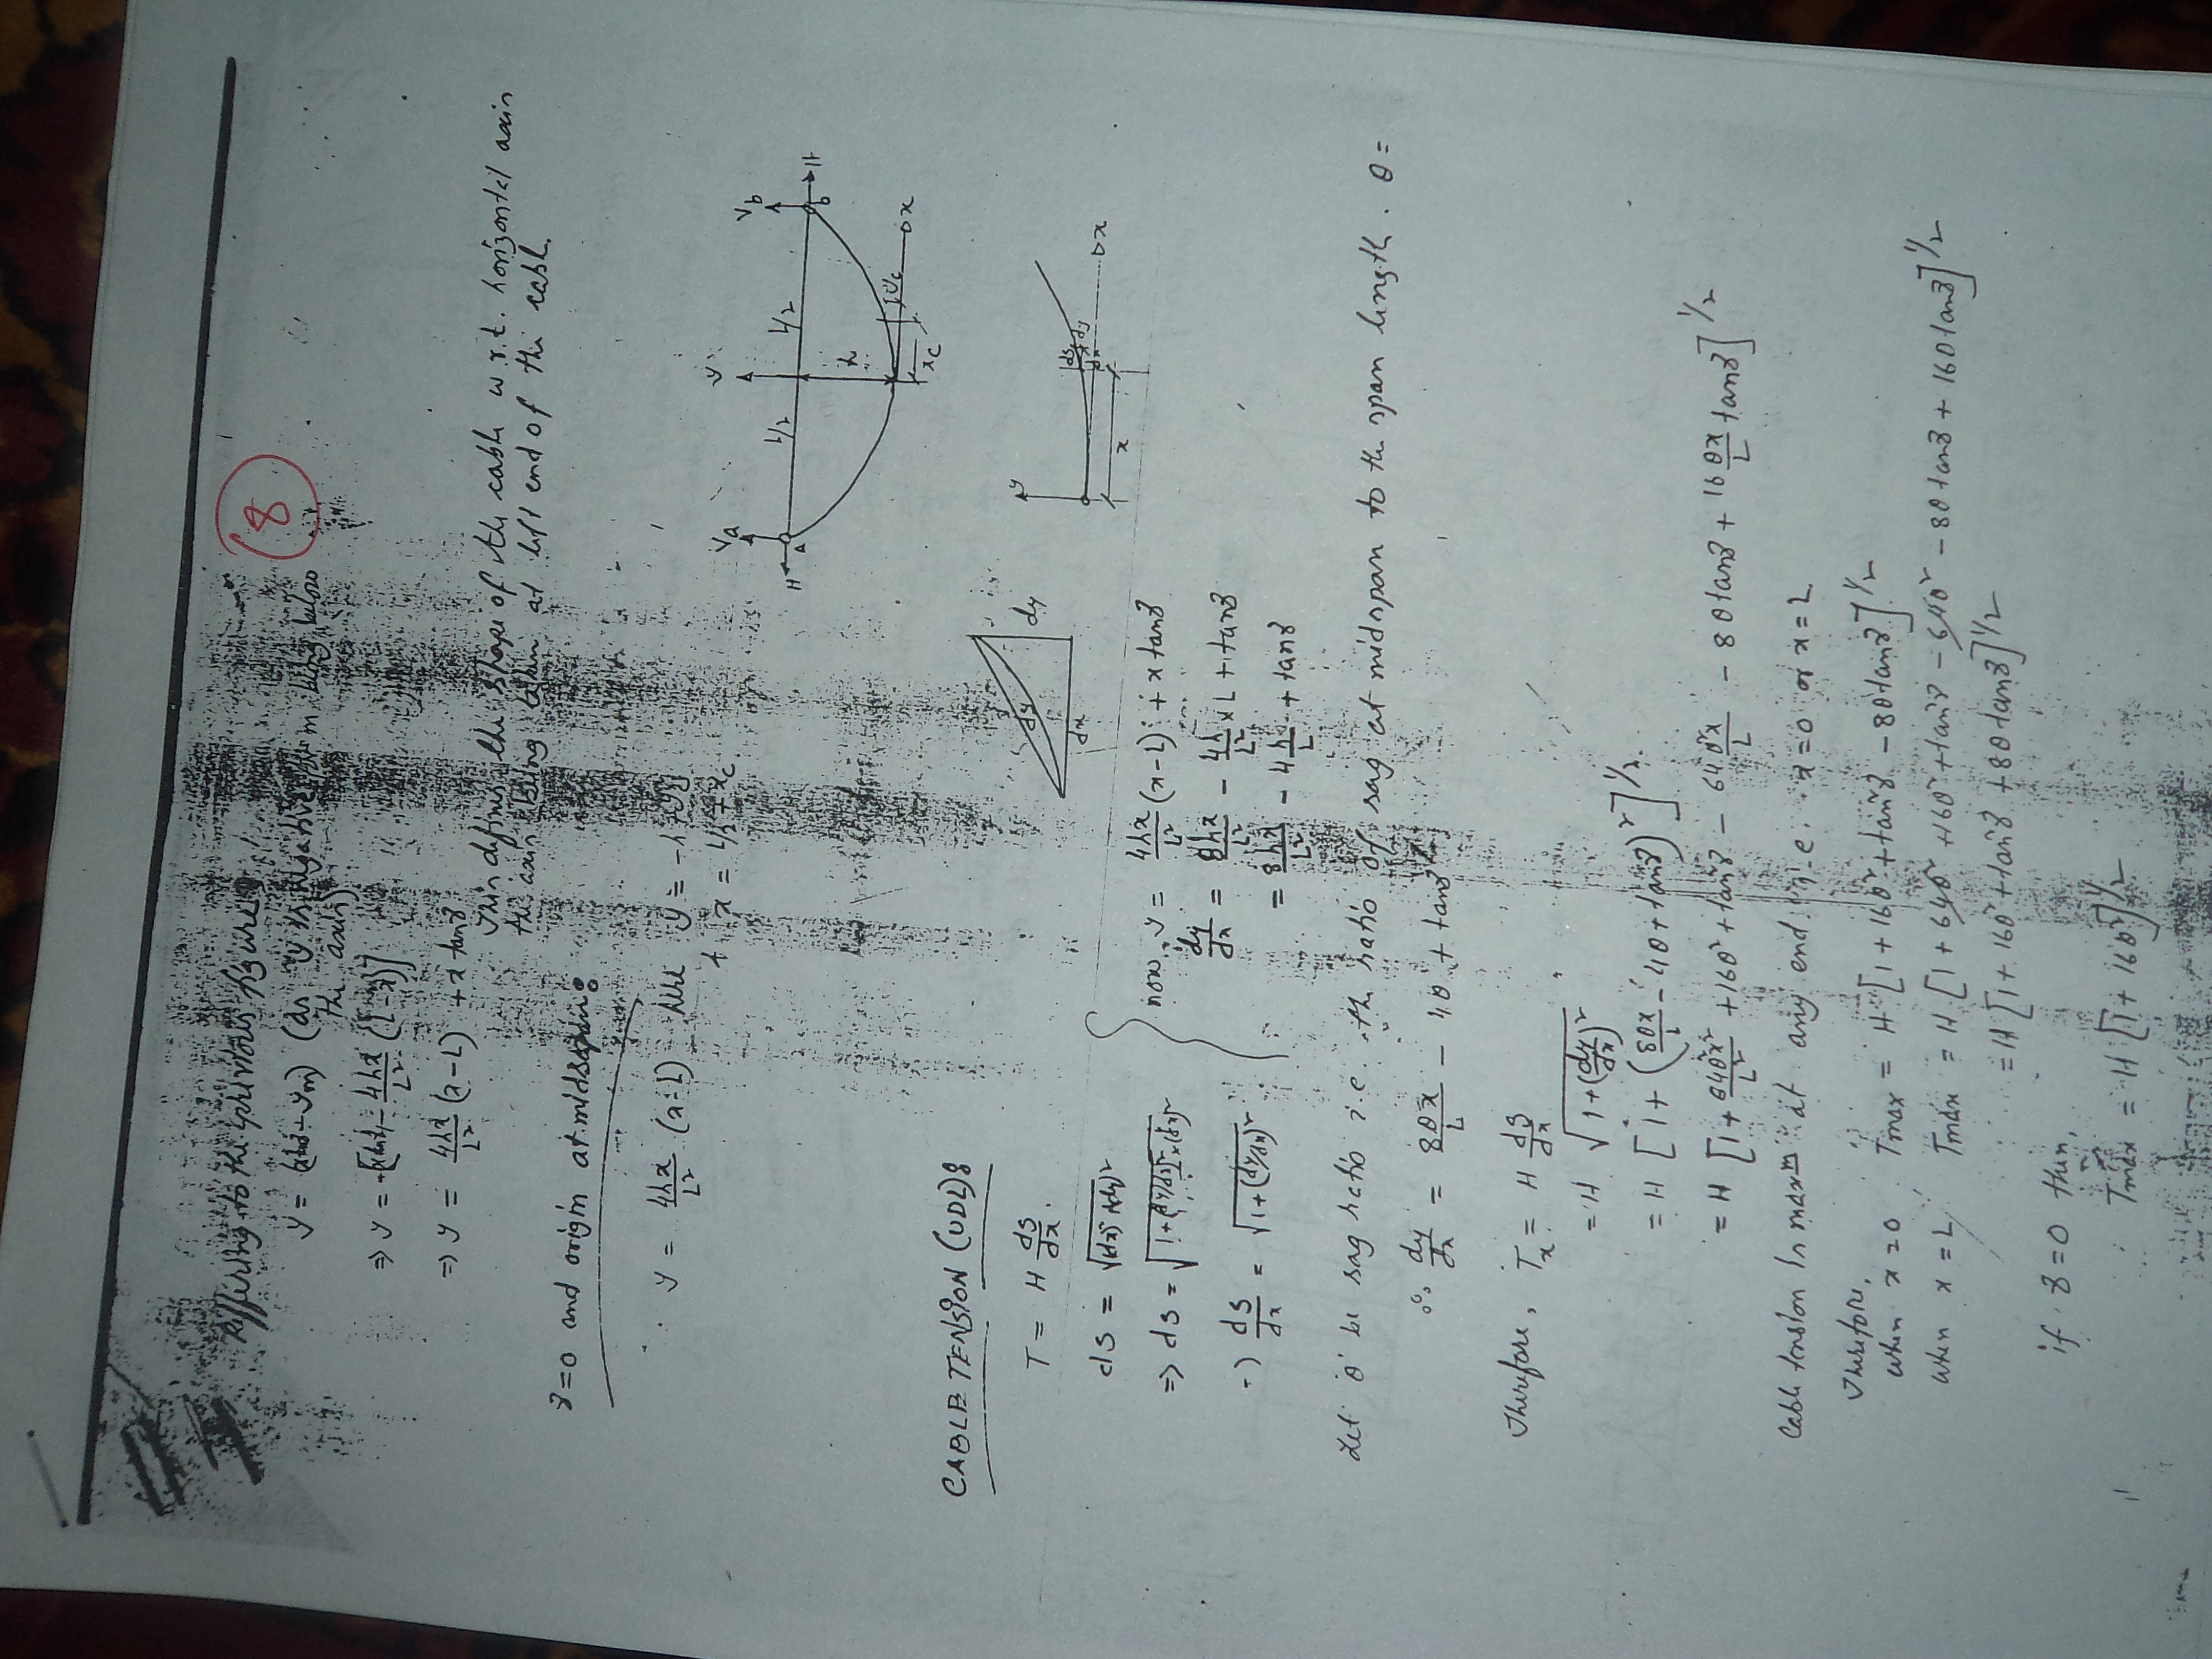 (8)
Reffering to the previous figure
y = (... - ym) (as y is negative, ym being below
the axis)
⇒ y = -[... - 4hx/L² (L-x)]
⇒ y = 4hx/L² (x-L) + x tanγ
This defines the shape of the cable w.r.t. horizontal axis
the axis being taken at left end of the cable.
γ=0 and origin at midspan:
y = 4hx/L² (x-L) here y = -h + yc
+ x = L/2 + xc
Va y Vb
H A L/2 L/2 b H
h
xc yc x
CABLE TENSION (UDL):
T = H ds/dx.
dy
dx
y
x ds dy dx x
ds = √(dx)²+(dy)²
⇒ ds = √1+(dy/dx)² × (dx)²
⇒ ds/dx = √1+(dy/dx)²
now, y = 4hx/L² (x-L) + x tanγ
dy/dx = 8hx/L² - 4h/L² × L + tanγ
= 8hx/L² - 4h/L + tanγ
Let θ be sag ratio i.e. the ratio of sag at midspan to the span length. θ =
∴ dy/dx = 8θx/L - 4θ + tanγ
Therefore, Tx = H ds/dx
= H √1+(dy/dx)²
= H [1 + (8θx/L - 4θ + tanγ)²]^1/2
= H [1 + 64θ²x²/L² + 16θ² + tan²γ - 64θ²x/L - 8θ tanγ + 16 θx/L tanγ]^1/2
Cable tension is maxm at any end. i.e. x=0 or x=L
Therefore,
when x=0 Tmax = H [1 + 16θ² + tan²γ - 8θ tanγ]^1/2
when x=L Tmax = H [1 + 64θ² + 16θ² + tan²γ - 64θ² - 8θ tanγ + 16θ tanγ]^1/2
= H [1 + 16θ² + tan²γ + 8θ tanγ]^1/2
if γ=0 then,
Tmax = H [1 + 16θ²]^1/2